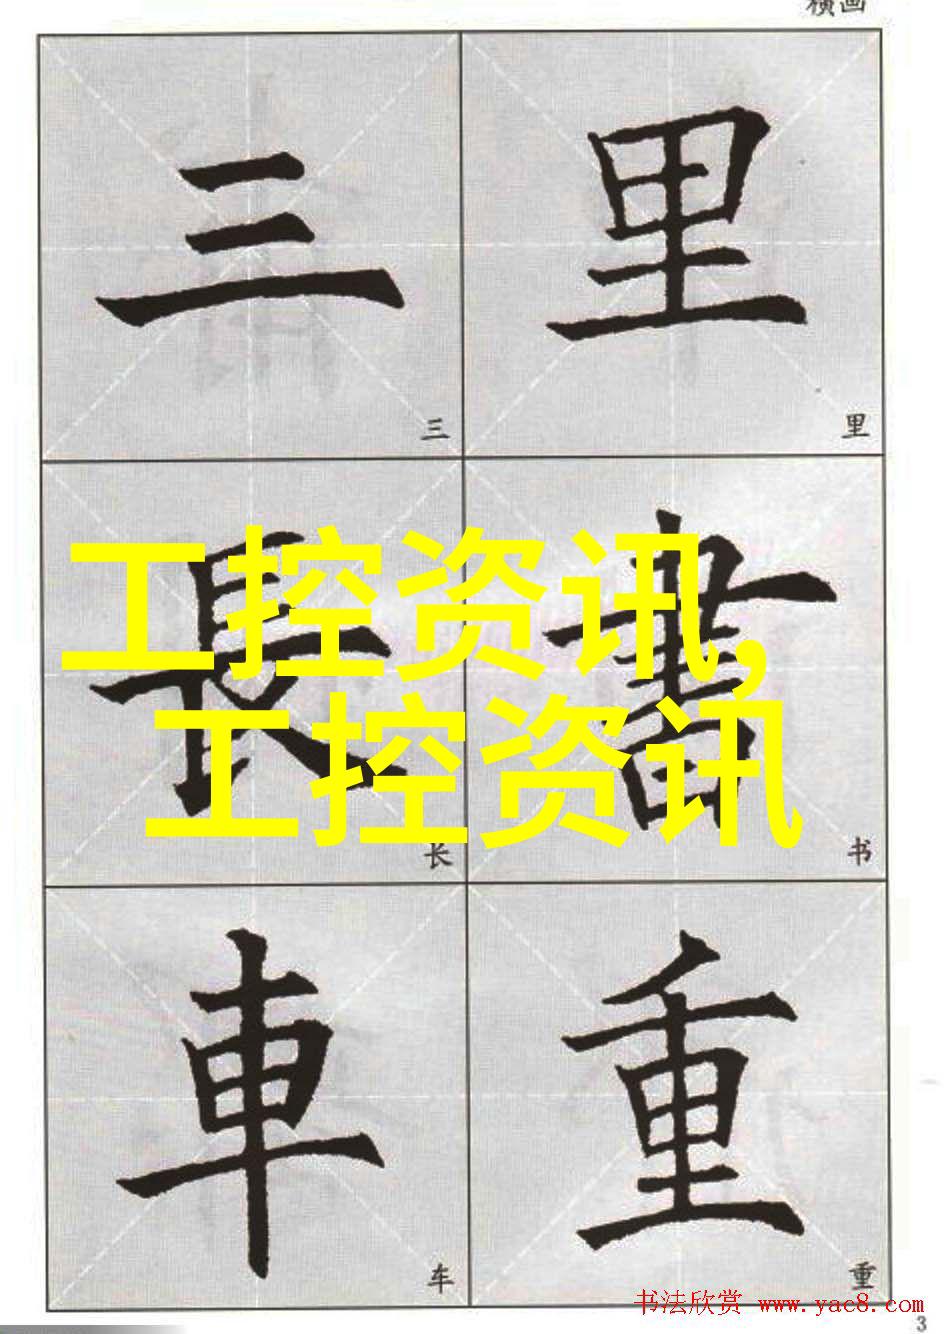 横画
三 里
三 里
長 書
工控资讯,
工控资讯
长 书
車 重
车 重
书法欣赏 www.yac8.com
3